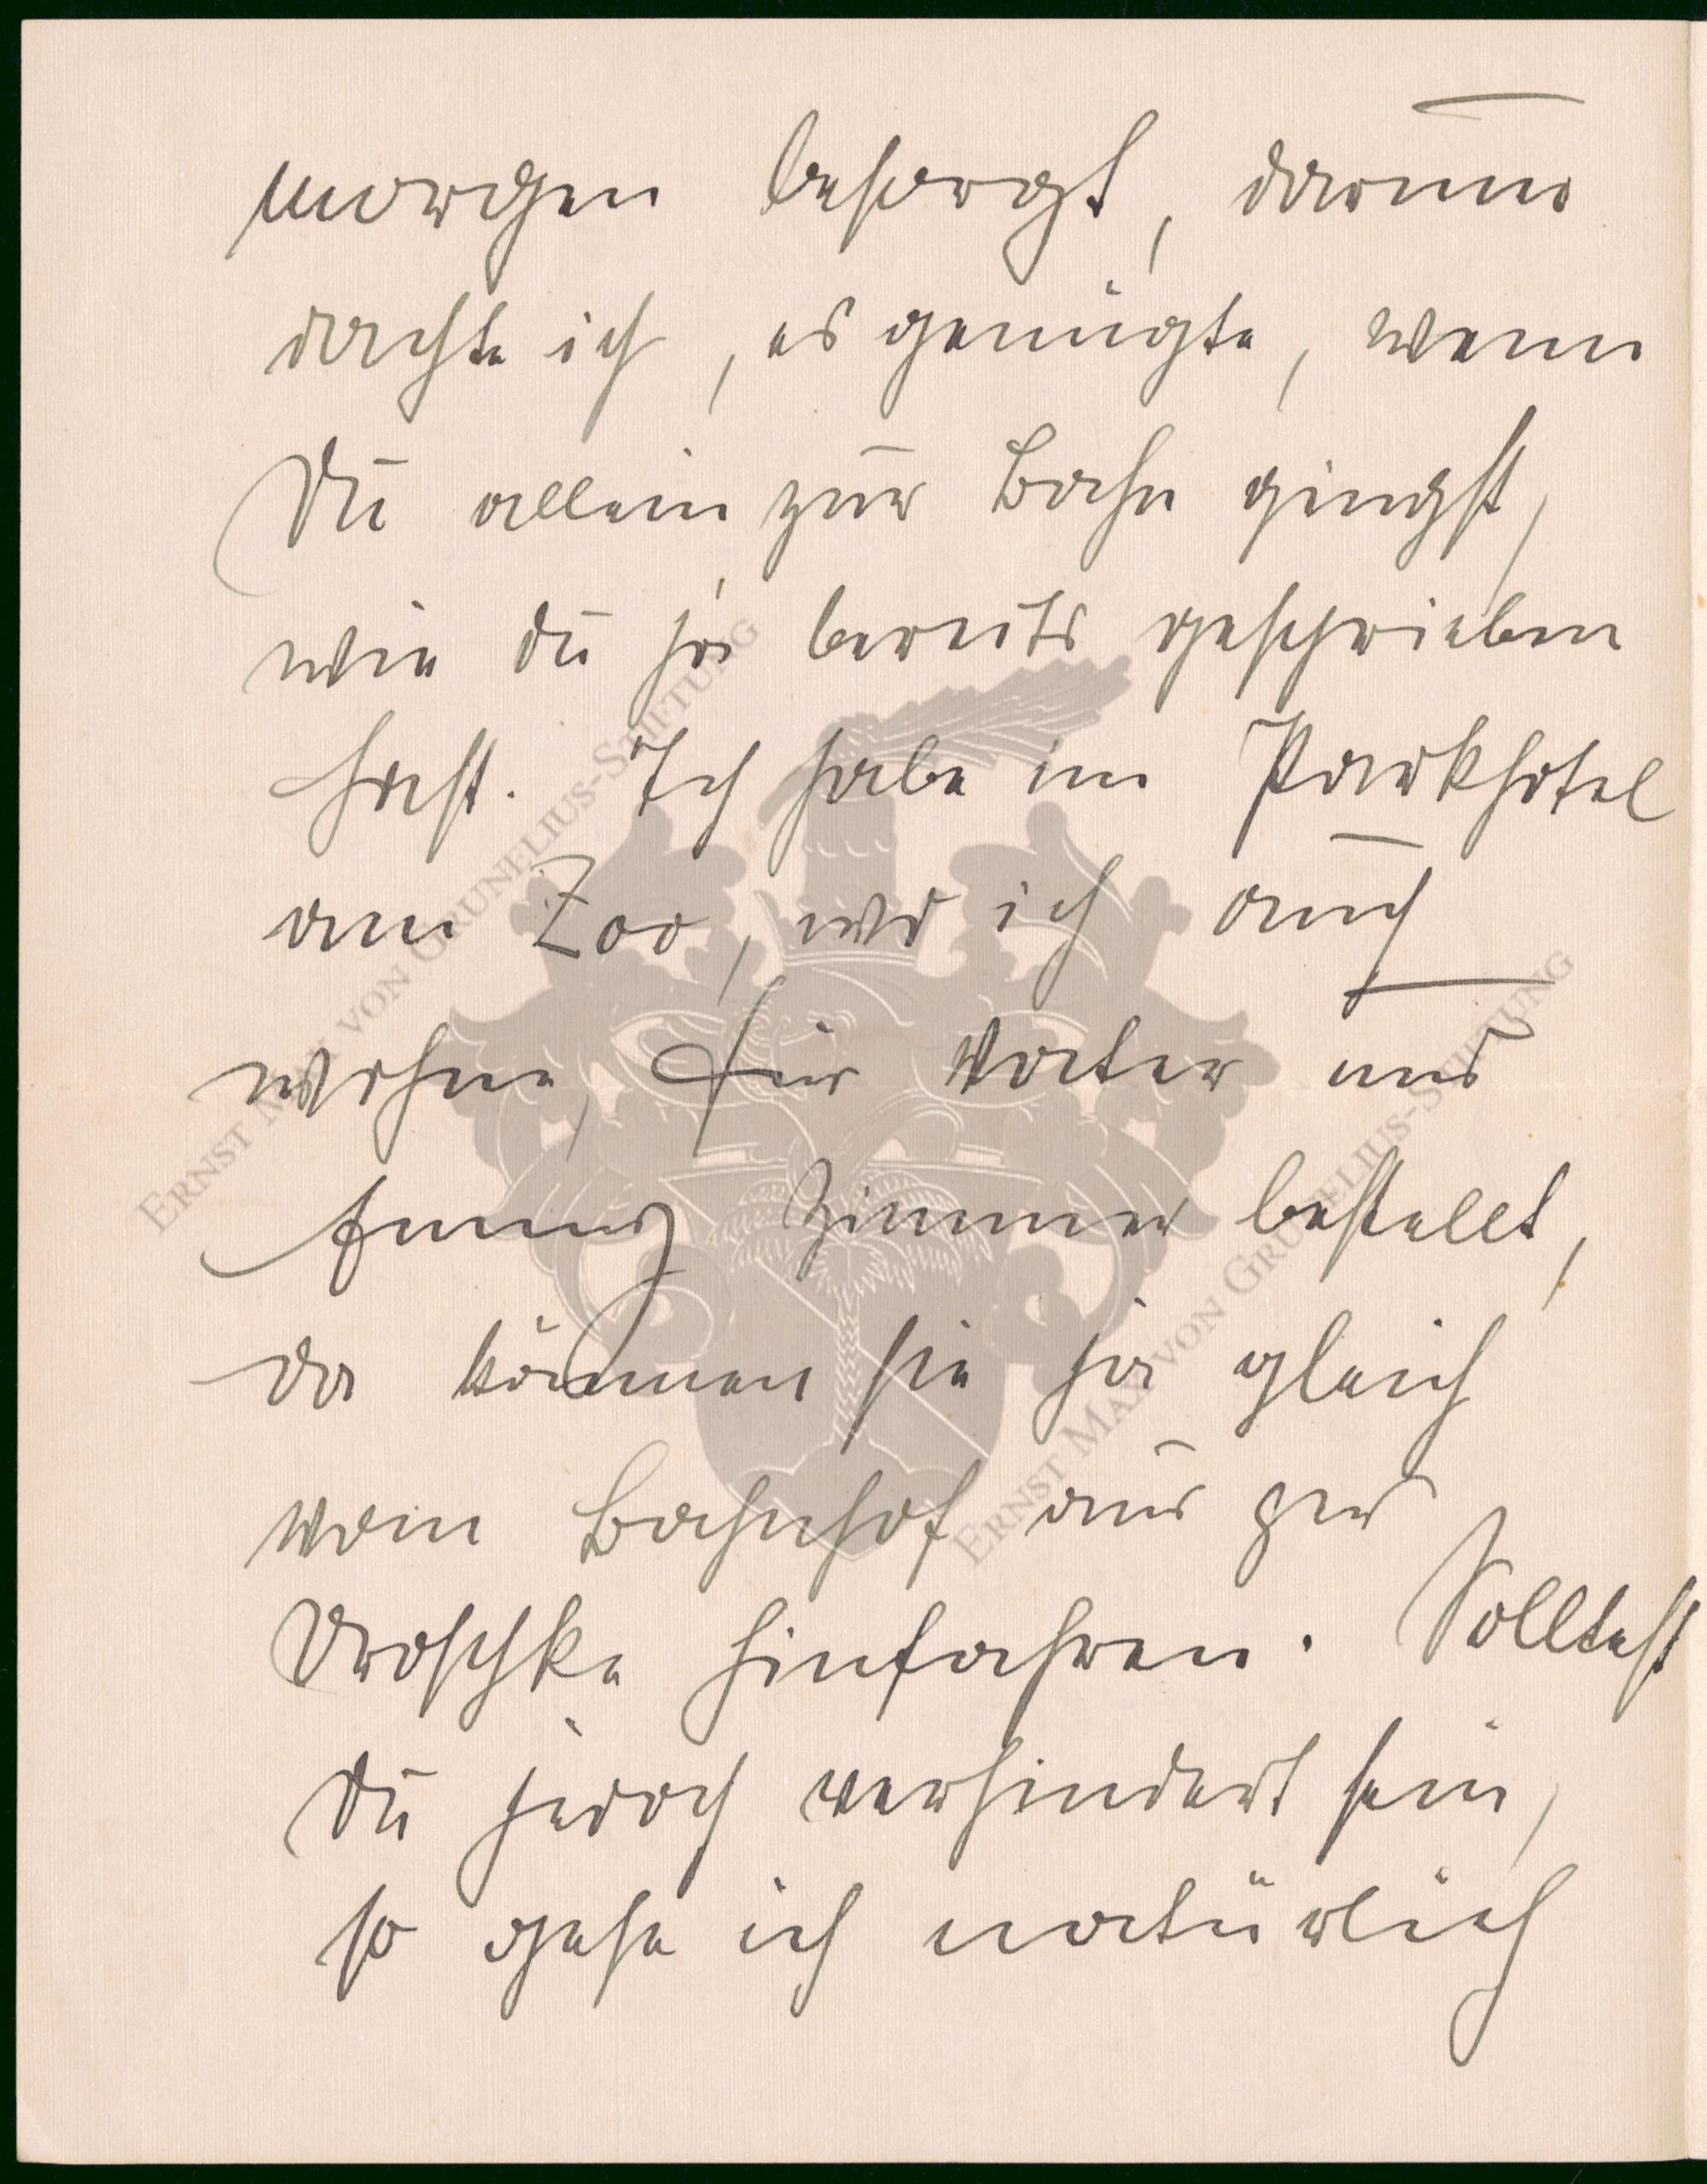 morgen besorgt, darum
dachte ich, es genügte, wenn
Du allein zur Bahn gingst,
wie du ja bereits geschrieben
hast. Ich habe im Parkhotel
am Zoo, wo ich auch
wohne, für Vater und
Zimmer bestellt,
da können sie ja gleich
vom Bahnhof aus per
Droschke hinfahren. Solltest
Du jedoch verhindert sein,
so gehe ich natürlich
ERNST MAX VON GRUNELIUS-STIFTUNG
ERNST MAX VON GRUNELIUS-STIFTUNG